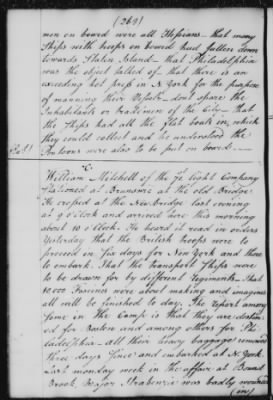 (269)
men on board were all Hessians — that many
Ships with troops on board had fallen down
towards Staten Island — that Philadelphia
was the object talked of — that there is an
exceeding hot press in N. York for the purpose
of manning their Vessels — don't spare the
Inhabitants or Tradesmen of the City — that
the Ships had all the flat boats in, which
they could collect and he understood the
Pontoons were also to be put on board —
William Mitchell of the Lt. light Company
Stationed at Brunswic at the old Bridge
He crossed at the New bridge last evening
at 9 o'Clock and arrived here this morning
about 10 o'Clock. He heard it read in orders
Yesterday that the British troops were to
proceed in five days for New York and there
to embark. That the transport Ships were
to be drawn for by different Regiments. That
10,000 Fascines were about making and imagines
all will be finished to day. The report among
some in the Camp is that they are destin
ed for Boston and among others for Phi
ladelphia — all their heavy baggage removed
three days since and embarked at N. York.
Last monday week in the affair at Bound
Brook, Major Frabenzia was badly wounded
(in)